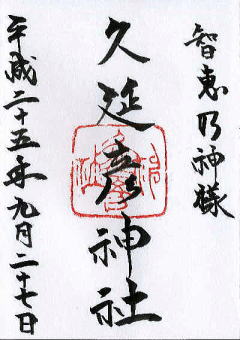 智恵乃神様
久延彦神社
平成二十五年九月二十七日